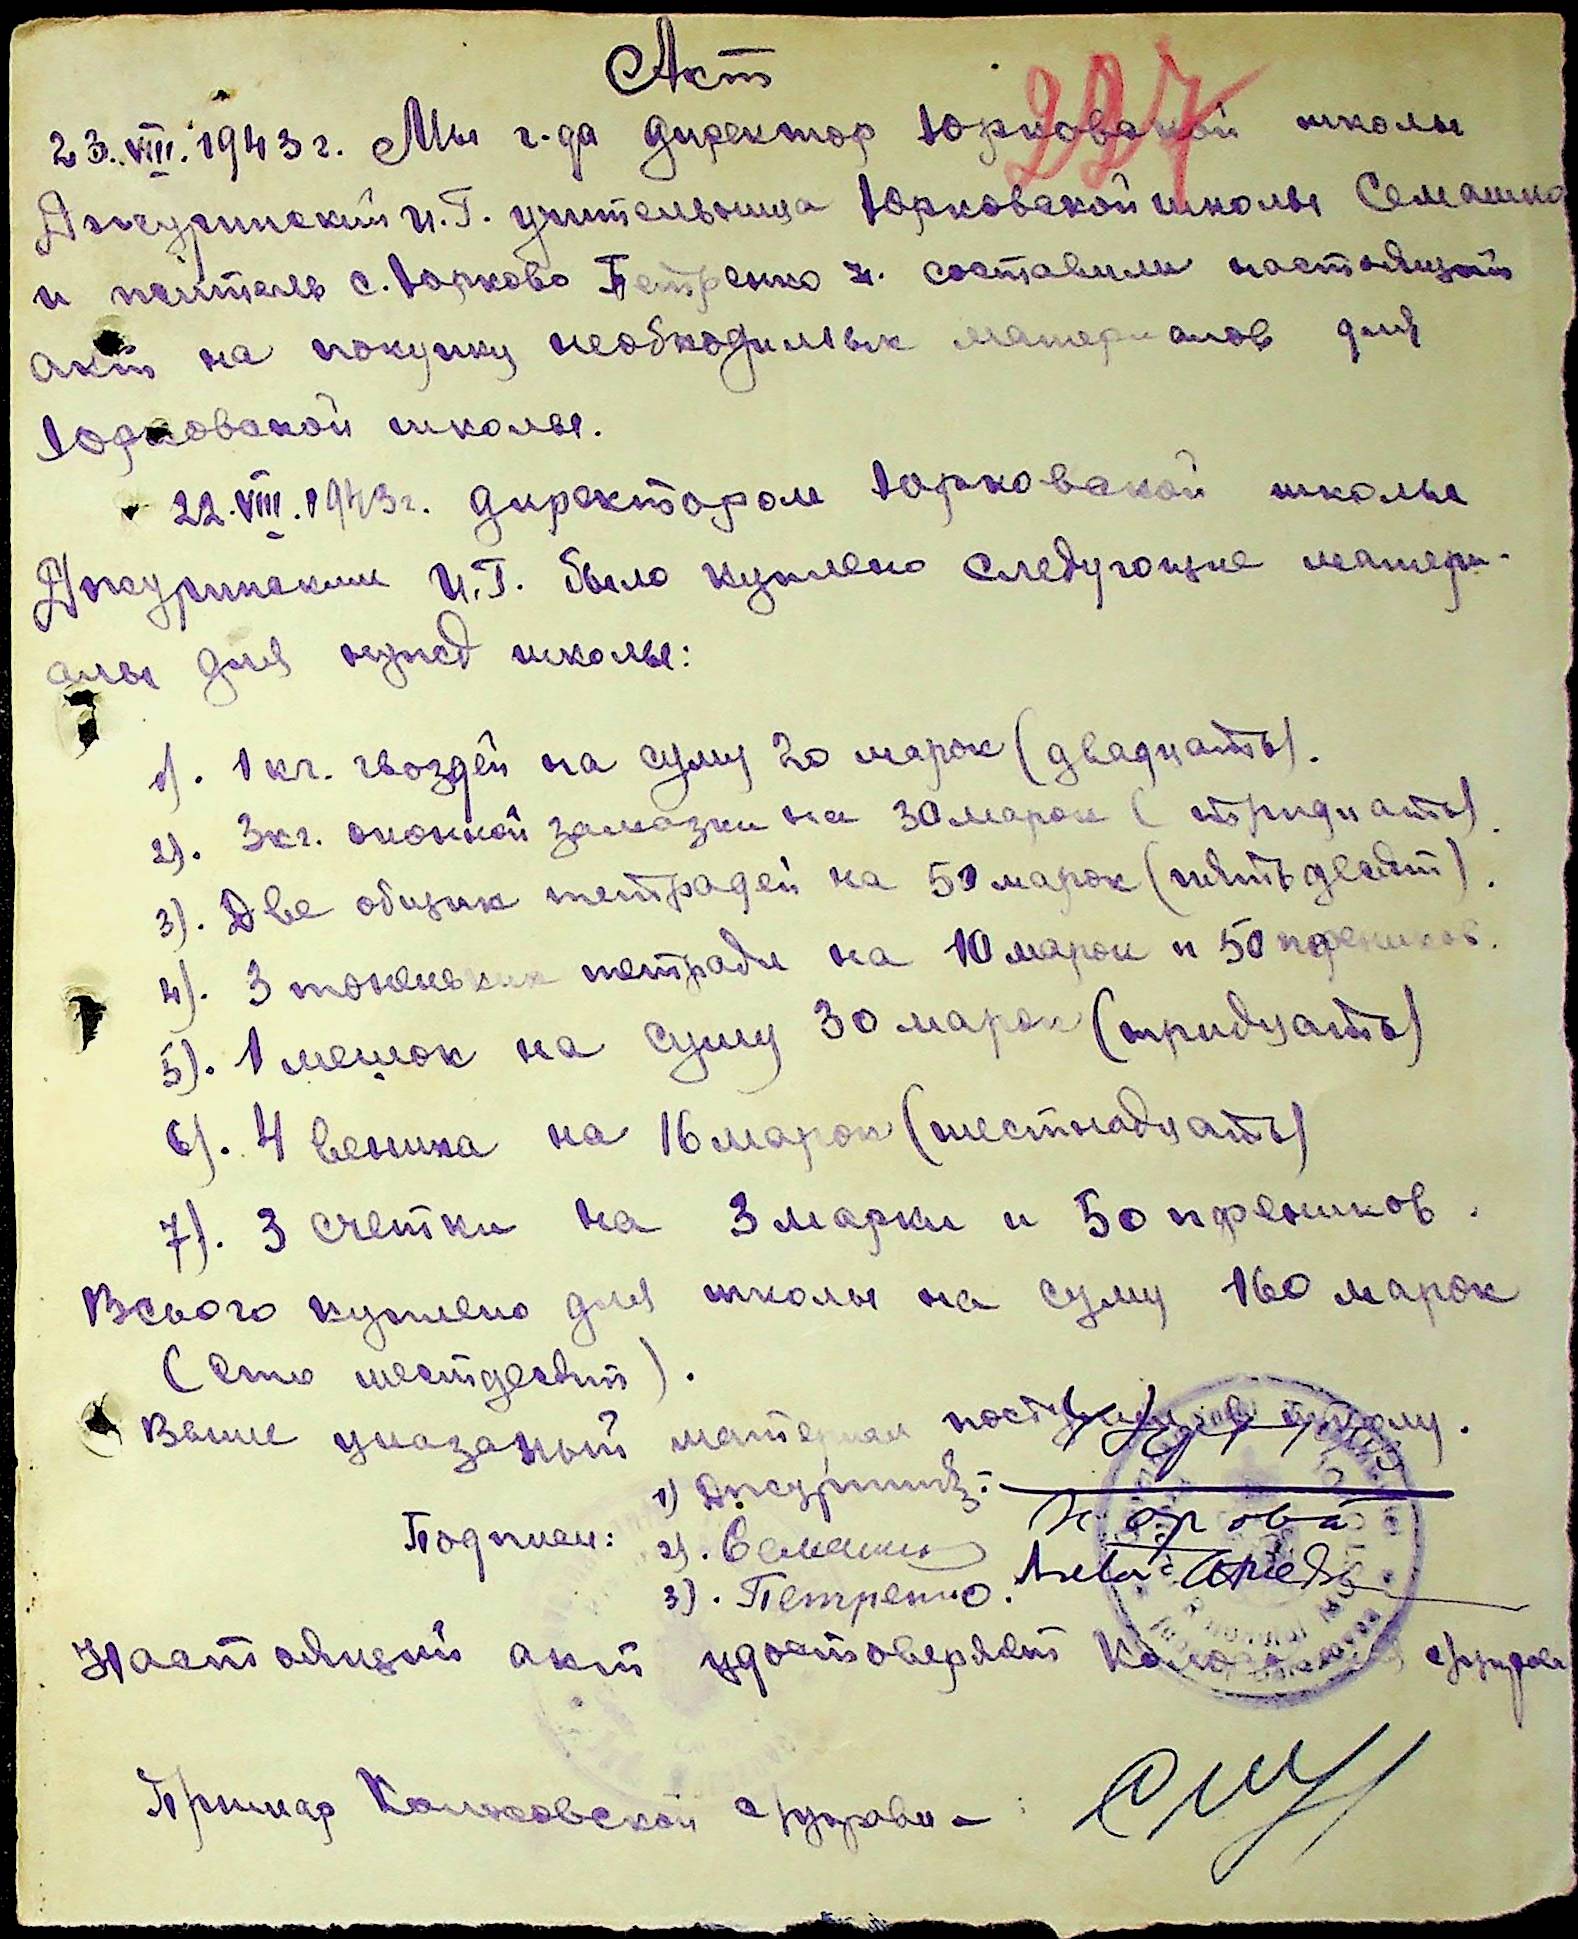 Акт
227
23.VIII.1943г. Мы г-да директор Юрковской школы
Джуринский И.Г. учительница Юрковской школы Семашко
и житель с. Юрково Петренко И. составили настоящий
акт на покупку необходимых материалов для
Юрковской школы.
22.VIII.1943г. директором Юрковской школы
Джуринским И.Г. было куплено следующие матери-
алы для нужд школы:
1). 1 кг. гвоздей на суму 20 марок (двадцать).
2). 3 кг. оконной замазки на 30 марок (тридцать).
3). Две общих тетрадей на 50 марок (пятьдесят).
4). 3 тоненьких тетради на 10 марок и 50 пфеников.
5). 1 мешок на суму 30 марок (тридцать)
6). 4 веника на 16 марок (шестнадцать)
7). 3 счетки на 3 марки и 50 пфеников.
Всього куплено для школы на суму 160 марок
(сто шестдесят).
Выше указаный материал школу.
1) Джуринск
Подписи: 2). Семашко
3). Петренко.
Настоящий акт удостоверяет
Примар